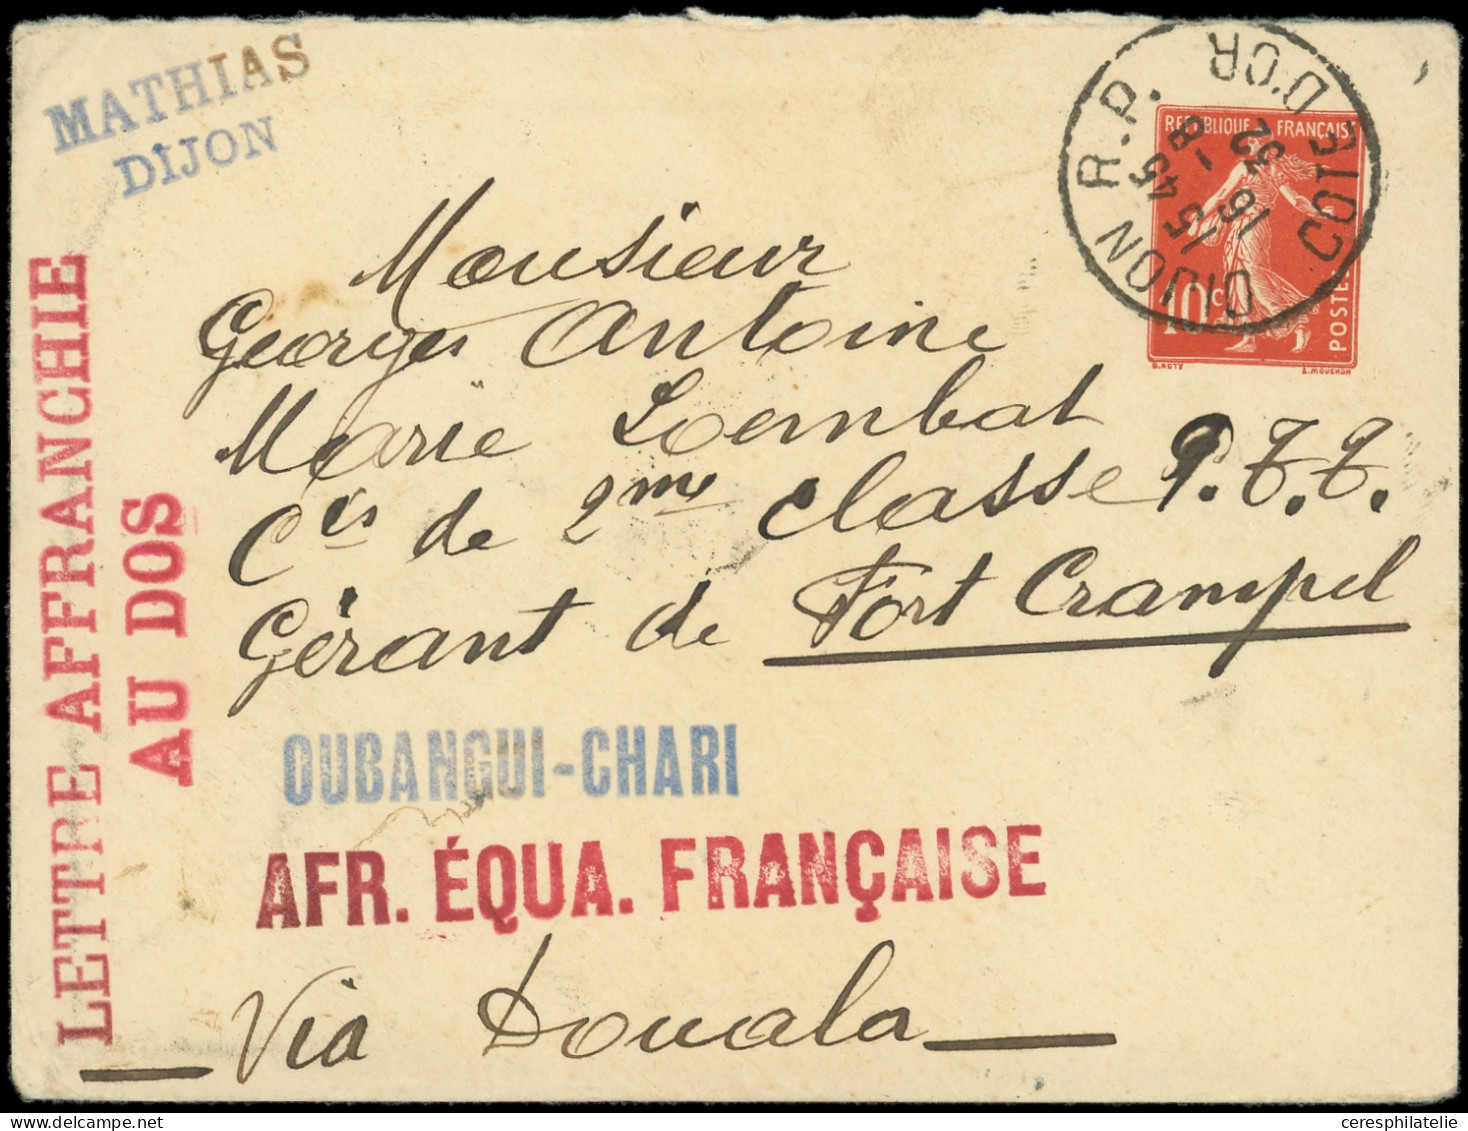 MATHIAS
DIJON
LETTRE AFFRANCHIE
AU DOS
DIJON R.P. COTE D'OR
15 45
16 - 8
32
REPUBLIQUE FRANÇAISE
10 c
POSTES
L. MOUCHON
Monsieur
Georges Antoine
Marie Lombat
Cis de 2me classe P.T.T.
Gérant de Fort Crampel
OUBANGUI-CHARI
AFR. ÉQUA. FRANÇAISE
Via Douala
ceresphilatelie